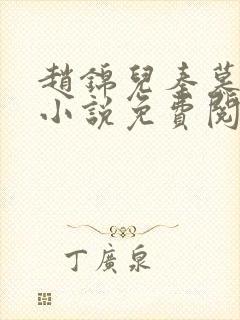 趙錦兒秦慕
小說免費閱
丁廣泉